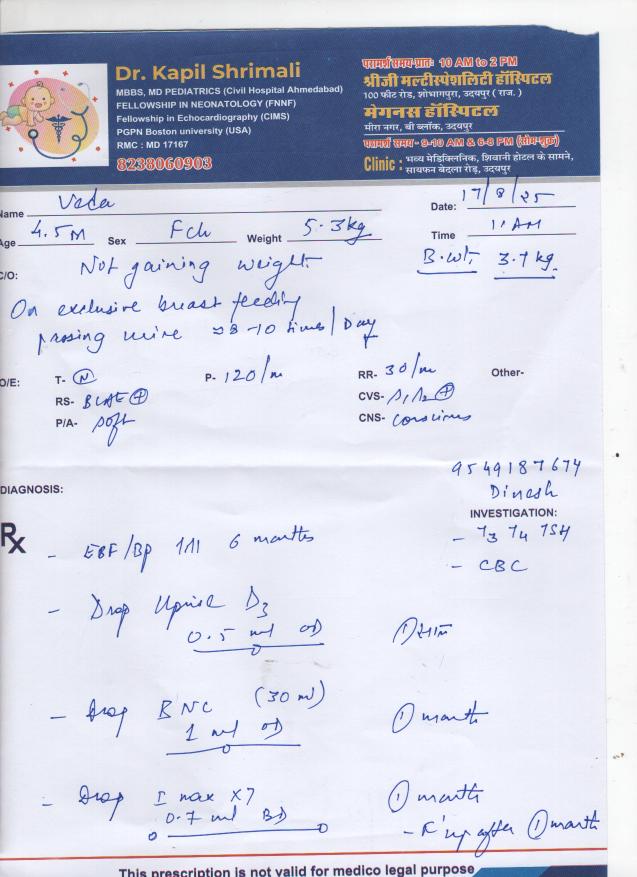 Dr. Kapil Shrimali
MBBS, MD PEDIATRICS (Civil Hospital Ahmedabad)
FELLOWSHIP IN NEONATOLOGY (FNNF)
Fellowship in Echocardiography (CIMS)
PGPN Boston university (USA)
RMC : MD 17167
8238060903
परामर्श समय-प्रातः 10 AM to 2 PM
श्रीजी मल्टीस्पेशलिटी हॉस्पिटल
100 फीट रोड, शोभागपुरा, उदयपुर ( राज. )
मेगनस हॉस्पिटल
मीरा नगर, बी ब्लॉक, उदयपुर
परामर्श समय- 9-10 AM & 6-8 PM (सोम-शुक्र)
Clinic : भव्य मेडिक्लिनिक, शिवानी होटल के सामने,
सायफन बेदला रोड़, उदयपुर
Name Veda
Date: 17/8/25
Age 4.5M Sex Fch Weight 5.3kg
Time 11 AM
C/O: Not gaining weight
B.wt. 3.1 kg
On exclusive breast feeding
8-10 times / Day
O/E: T- N P- 120/m RR- 30/m Other-
RS- BLAE + CVS- S1S2 +
P/A- soft CNS- conscious
9549187674
Dinesh
DIAGNOSIS:
INVESTIGATION:
Rx
- T3 T4 TSH
- EBF/Bp till 6 months
- CBC
- Drop D3
0.5 ml OD
- Drop BNC (30 ml) 1 month
1 ml OD
- Drop 1 month
0.7 ml BD
- F'up after 1 month
This prescription is not valid for medico legal purpose